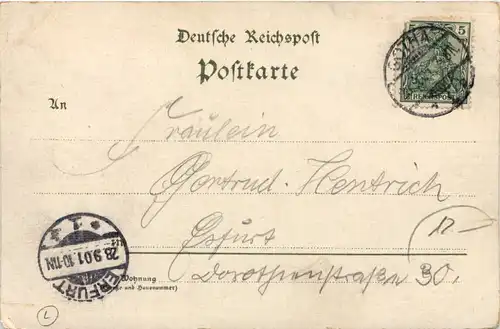 Deutsche Reichspost
Postkarte
5 5
GOTHA
An
Fräulein
Gertrud Hentrich
Erfurt
Dorotheenstraße 30.
12.–
ERFURT
1
28.9.01.10-11N
Wohnung
und Hausnummer)
L